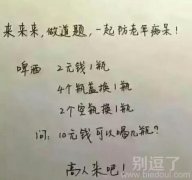 来来来,做道题,一起防老年痴呆!
啤酒 2元钱1瓶
4个瓶盖换1瓶
2个空瓶换1瓶
问:10元钱可以喝几瓶?
高人来吧!
别逗了
www.biedoul.com